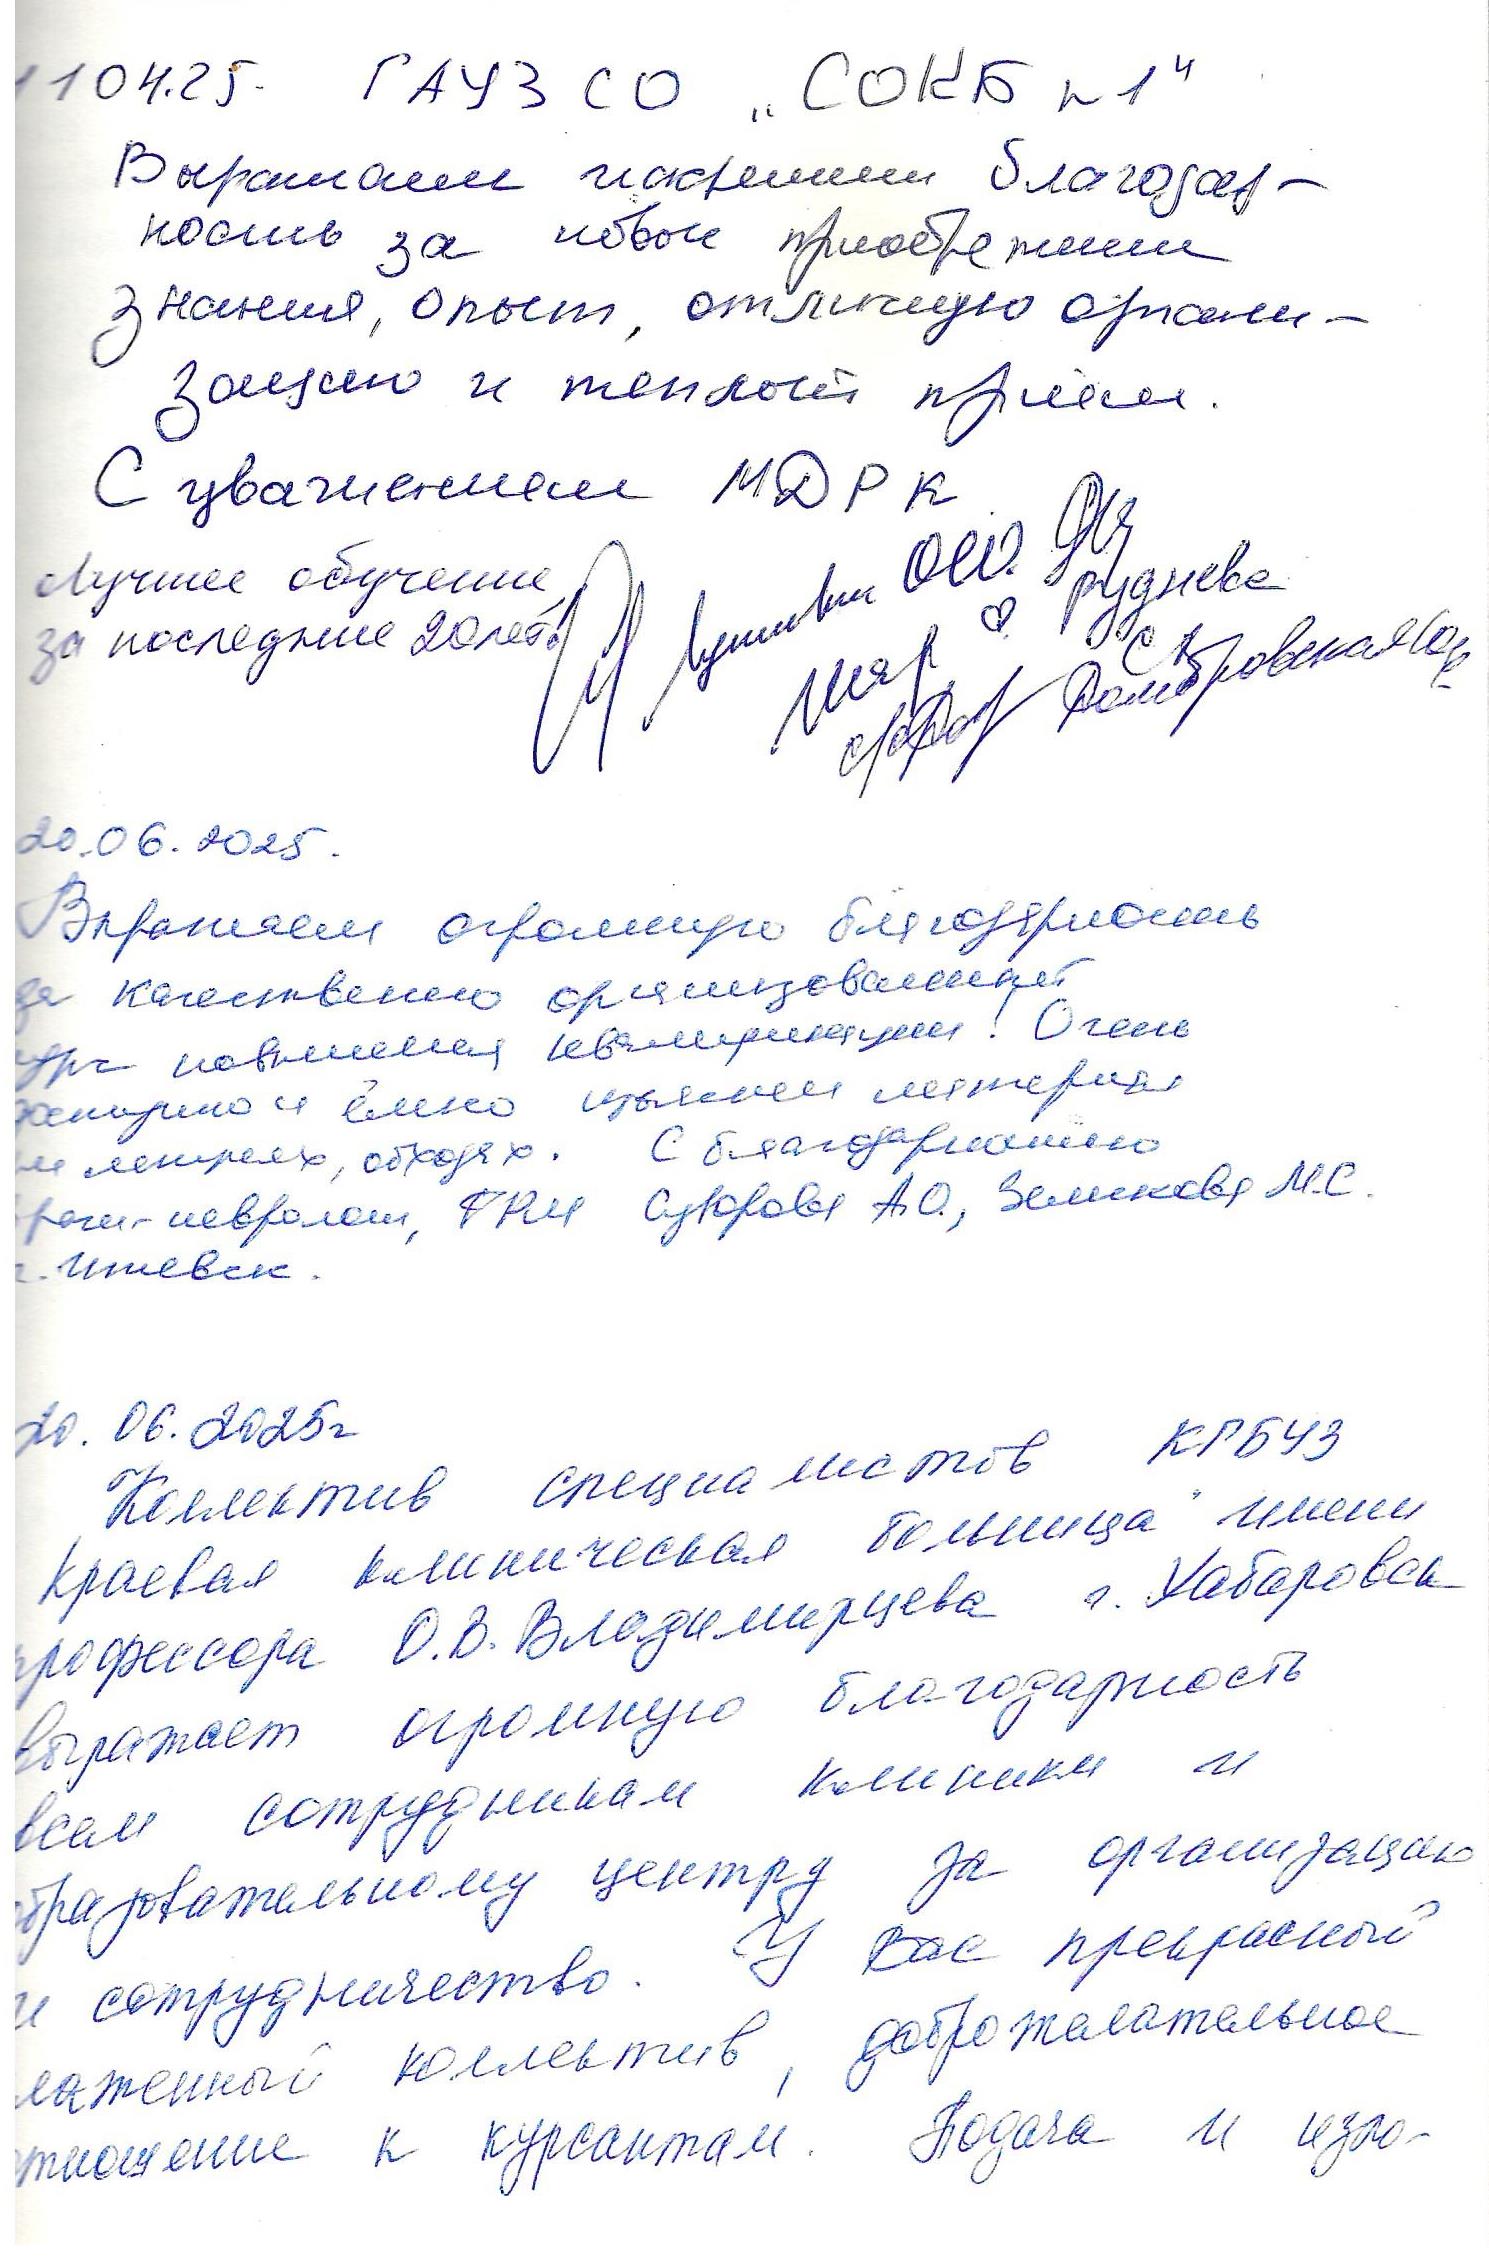 11 04.25. ГАУЗ СО „СОКБ №1"
Выражаем искреннюю благодар-
ность за новые приобретенные
знания, опыт, отличную органи-
зацию и теплый приём.
С уважением МДРК
Лучшее обучение
за последние 20 лет!
О.Ю.
Руднева
С.А.
Домбровская Ю.
20.06.2025.
Выражаем огромную благодарность
за качественно организованный
курс повышения квалификации! Очень
доступно и ёмко изложен материал
на лекциях, обходах. С благодарностью
врачи-неврологи, ФРМ Суворова А.О., Земскова М.С.
г. Ижевск.
20.06.2025г
Коллектив специалистов КГБУЗ
Краевая клиническая больница" имени
профессора О.В. Владимирцева г. Хабаровск
выражает огромную благодарность
всем сотрудникам клиники и
образовательному центру за организацию
и сотрудничество. У Вас прекрасный
слаженный коллектив, доброжелательное
отношение к курсантам. Подача и изло-